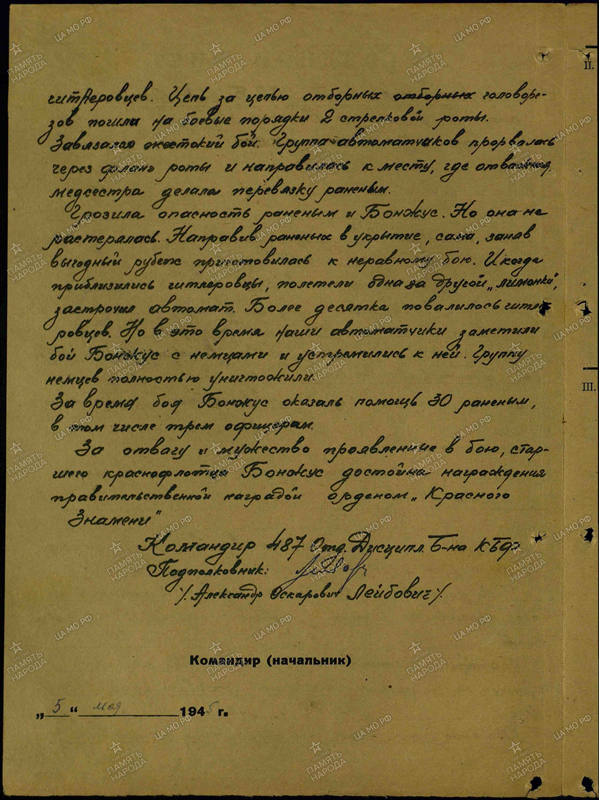 гитлеровцев. Цепь за цепью отборных отборных головоре-
зов пошли на боевые порядки 2 стрелковой роты.
Завязался жестокий бой. Группа автоматчиков прорвалась
через фланг роты и направилась к месту, где отважная
медсестра делала перевязку раненым.
Грозила опасность раненым и Бонжус. Но она не
растерялась. Направив раненых в укрытие, сама, заняв
выгодный рубеж приготовилась к неравному бою. И когда
приблизились гитлеровцы, полетели одна за другой „лимонки",
застрочил автомат. Более десятка повалилось гитле-
ровцев. Но в это время наши автоматчики заметили
бой Бонжус с немцами и устремились к ней. Группу
немцев полностью уничтожили.
За время боя Бонжус оказала помощь 30 раненым,
в том числе трем офицерам.
За отвагу и мужество проявленные в бою, стар-
шего краснофлотца Бонжус достойна награждения
правительственной наградой орденом „Красного
Знамени"
Командир 487 Отд. Дисципл. Б-на КБФ
Подполковник:
/Александр Оскарович Лейбович/.
Командир (начальник)
„5" мая 1945 г.
II.
III.
ПАМЯТЬ НАРОДА
ЦА МО РФ